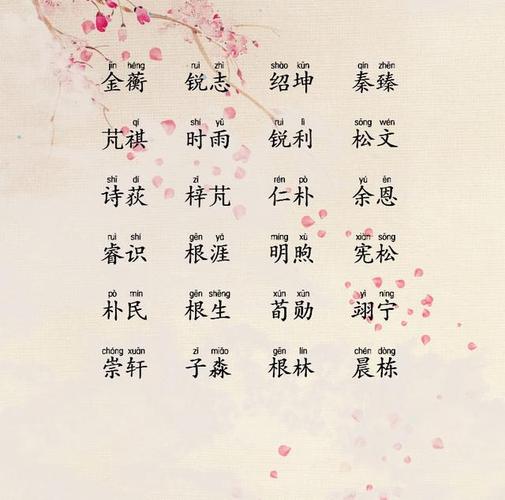 jīn héng ruì zhì shào kūn qín zhēn
金蘅 锐志 绍坤 秦臻
qí shí yǔ ruì lì sōng wén
芃祺 时雨 锐利 松文
shī dí zǐ rén pò yú ēn
诗荻 梓芃 仁朴 余恩
ruì shí gēn yá míng xù xiàn sōng
睿识 根涯 明煦 宪松
pò mín gēn shēng xún xūn yì níng
朴民 根生 荀勋 翊宁
chóng xuān zǐ miǎo gēn lín chén dòng
崇轩 子淼 根林 晨栋